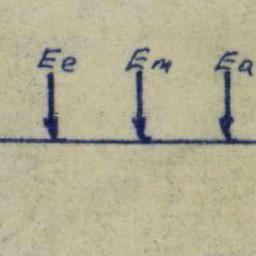 Ee Em Ea